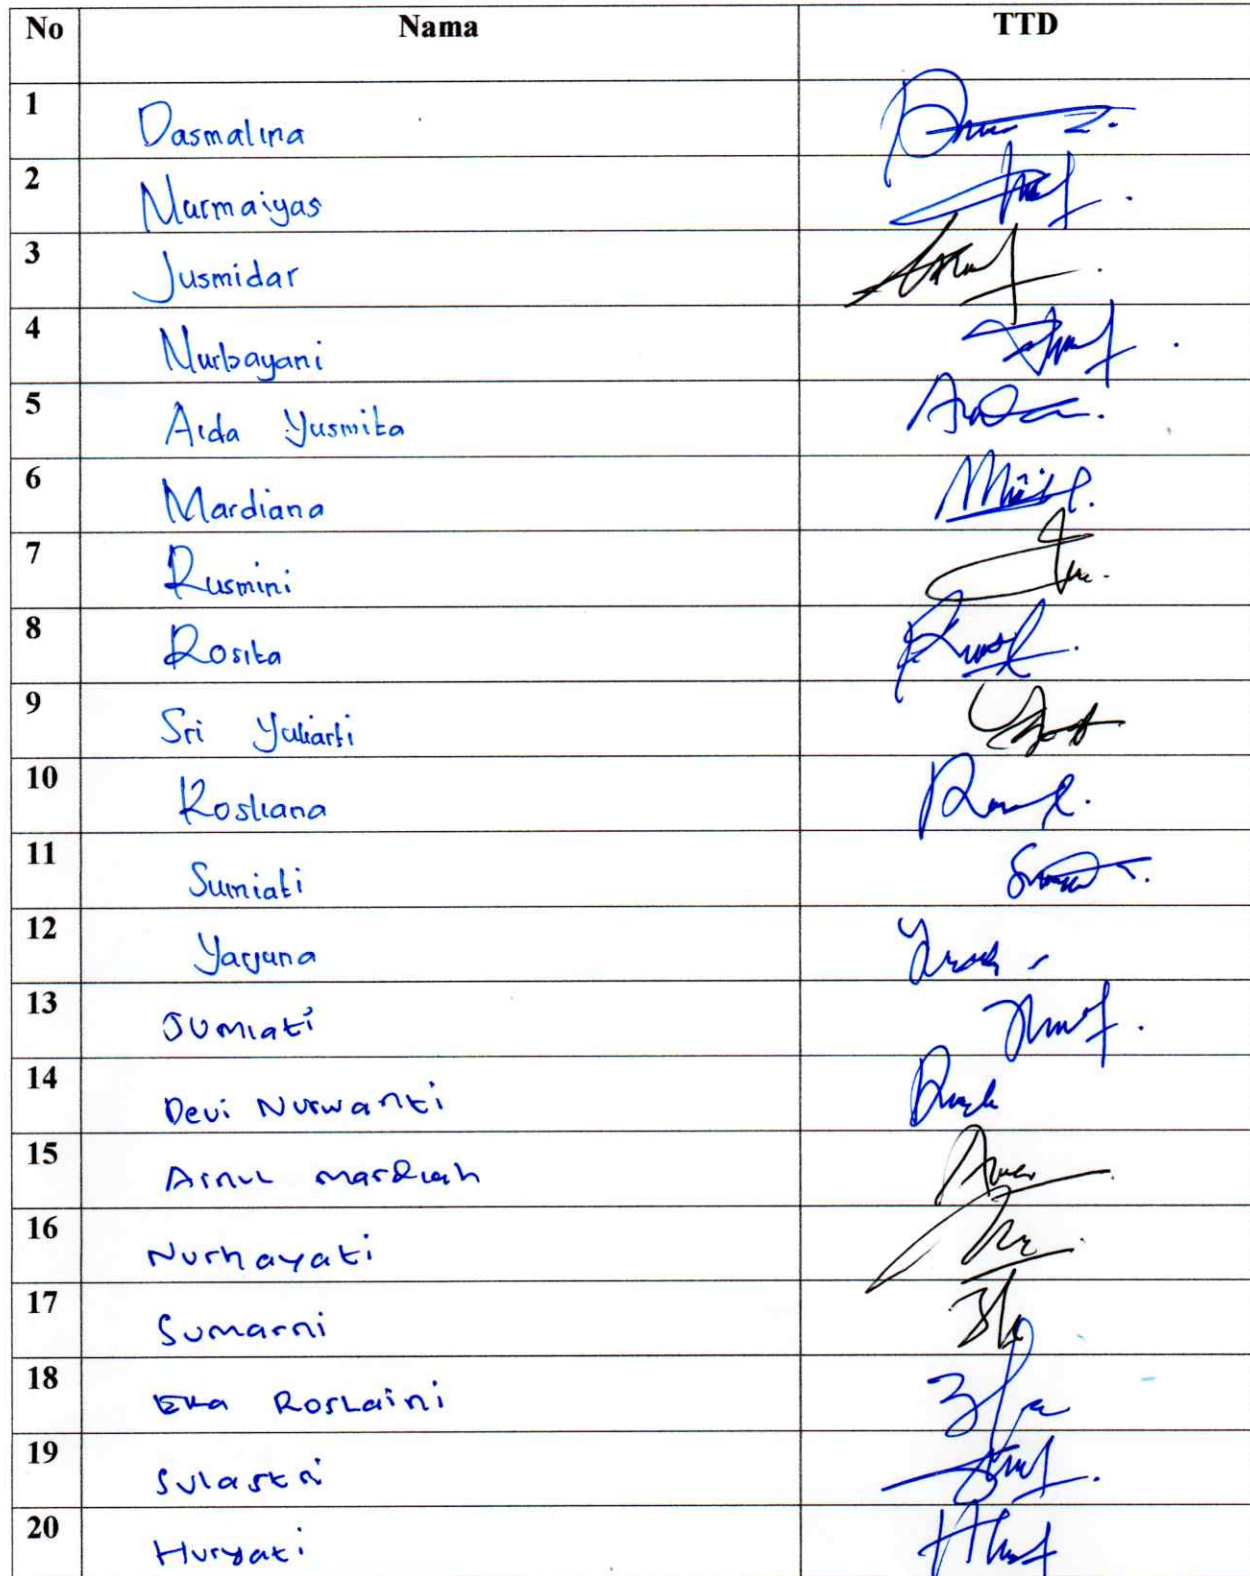 No Nama TTD
1 Dasmalina
2 Nurmaiyas
3 Jusmidar
4 Nurbayani
5 Aida Yusmita
6 Mardiana
7 Rusmini
8 Rosita
9 Sri Yuliarti
10 Rosliana
11 Sumiati
12
13 Jumiati
14 Devi Nurwanti
15 Ainul mardiah
16 Nurhayati
17 Sumarni
18 Eka Roslaini
19 Sulastri
20 Huryati